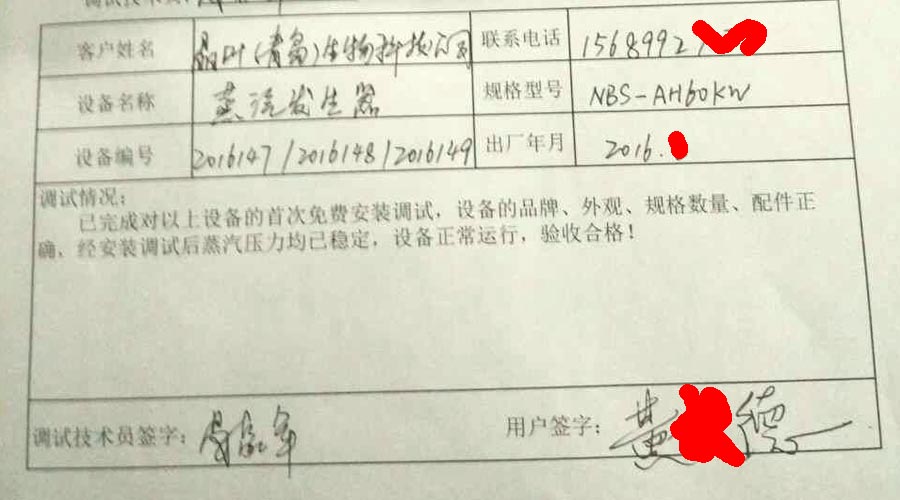 调试技术员
客户姓名 晶叶(青岛)生物科技公司 联系电话 1568992
设备名称 蒸汽发生器 规格型号 NBS-AH60KW
设备编号 2016147/2016148/2016149 出厂年月 2016.
调试情况:
已完成对以上设备的首次免费安装调试,设备的品牌、外观、规格数量、配件正
确,经安装调试后蒸汽压力均已稳定,设备正常运行,验收合格!
调试技术员签字: 用户签字: 黄 德